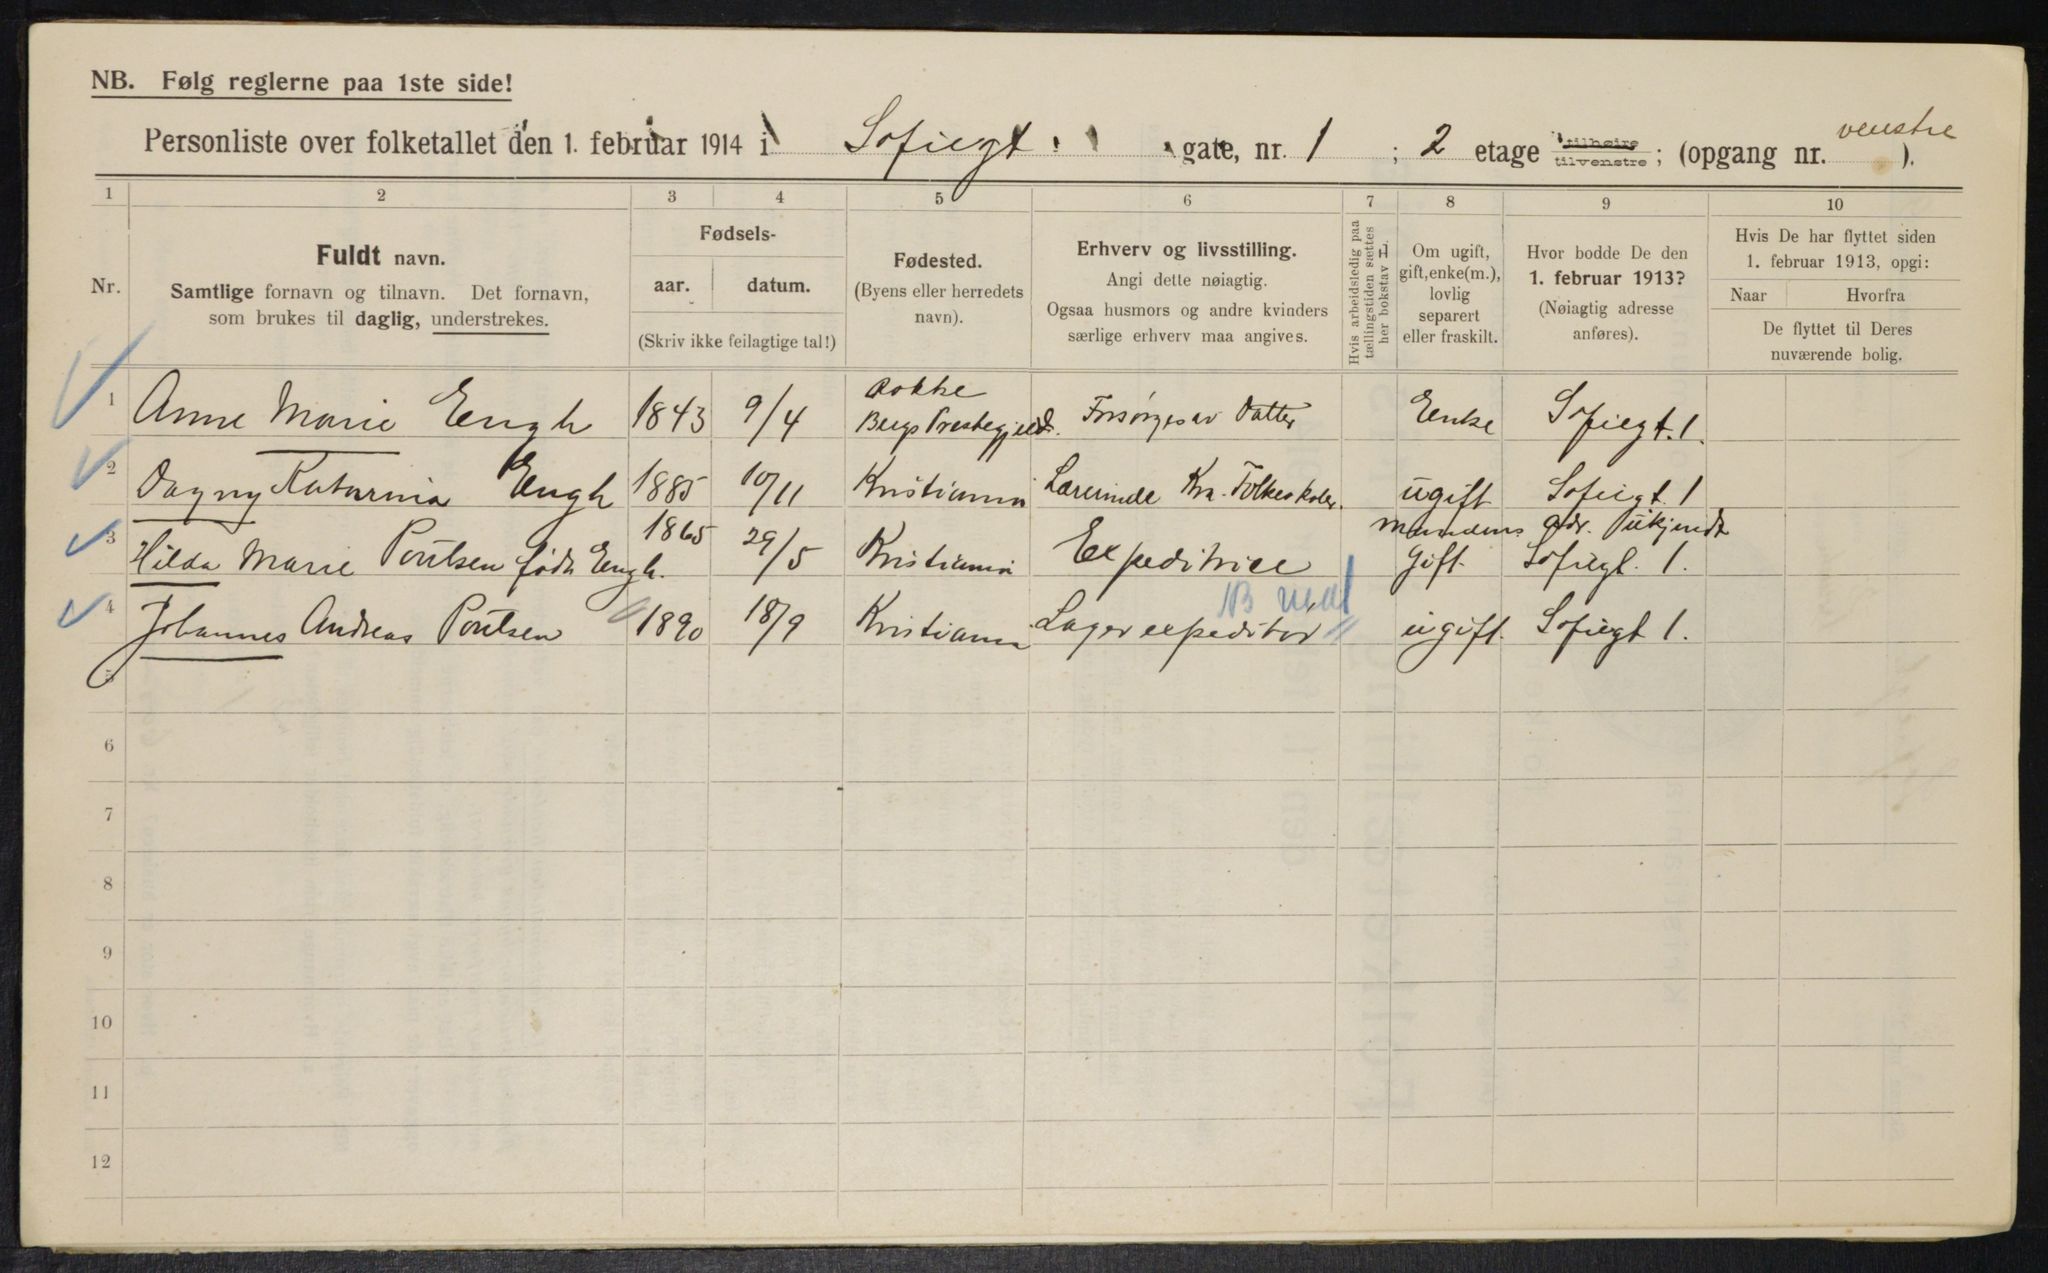 NB. Følg reglerne paa 1ste side!
Personliste over folketallet den 1. februar 1914 i Sofiegt. gate, nr. 1 ; 2 etage tilhøire tilvenstre ; (opgang nr. venstre ).
1 2 3 4 5 6 7 8 9 10
Nr.
Fuldt navn.
Samtlige fornavn og tilnavn. Det fornavn,
som brukes til daglig, understrekes.
Fødsels-
aar. datum.
(Skriv ikke feilagtige tal!)
Fødested.
(Byens eller herredets
navn).
Erhverv og livsstilling.
Angi dette nøiagtig.
Ogsaa husmors og andre kvinders
særlige erhverv maa angives.
Hvis arbeidsledig paa
tællingstiden sættes
her bokstav L.
Om ugift,
gift, enke(m.),
lovlig
separert
eller fraskilt.
Hvor bodde De den
1. februar 1913?
(Nøiagtig adresse
anføres).
Hvis De har flyttet siden
1. februar 1913, opgi:
Naar Hvorfra
De flyttet til Deres
nuværende bolig.
Rokke
1 Anne Marie Engh 1843 9/4 Bergs Prestegjeld. Forsørges av Datter Enke Sofiegt. 1.
2 Dagny Katarina Engh 1885 10/11 Kristiania Lærerinde Kra. Folkeskoler. ugift Sofiegt. 1
Mandens adr. ukjendt
3 Hilda Marie Poulsen født Engh. 1865 29/5 Kristiania Expeditrice Gift. Sofiegt. 1.
4 Johannes Andreas Poulsen 1890 18/9 Kristiania Lagerexpeditør ugift. Sofiegt 1.
5
6
7
8
9
10
11
12